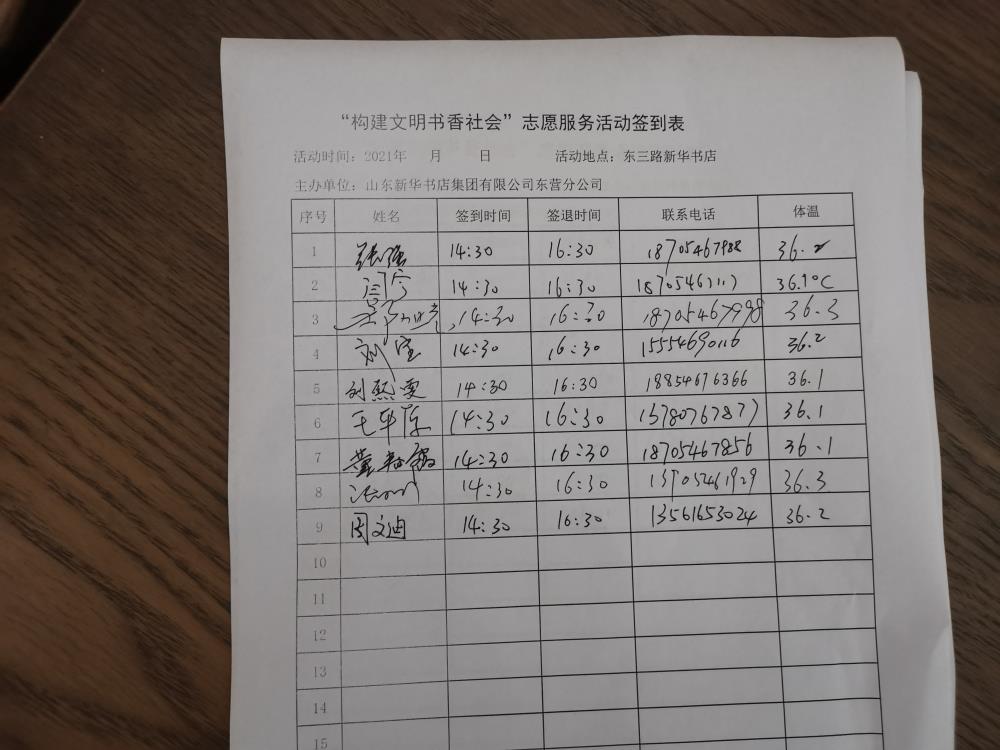 “构建文明书香社会”志愿服务活动签到表
活动时间：2021年 月 日 活动地点：东三路新华书店
主办单位：山东新华书店集团有限公司东营分公司
序号 姓名 签到时间 签退时间 联系电话 体温
1 张强 14:30 16:30 18705467988 36.2
2 14:30 16:30 36.1℃
3 14:30 16:30 18705467998 36.3
4 刘宝 14:30 16:30 15554690116 36.2
5 刘熙雯 14:30 16:30 18854676366 36.1
6 14:30 16:30 13780767877 36.1
7 14:30 16:30 18705467856 36.1
8 14:30 16:30 13905461929 36.3
9 周文迪 14:30 16:30 13561653024 36.2
10
11
12
13
14
15